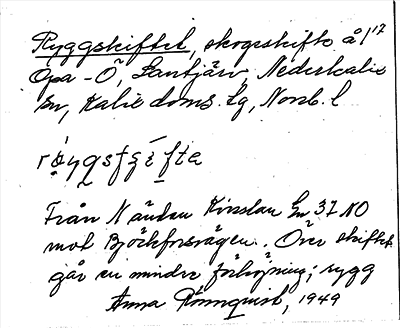 Ryggskiftet, skogsskifte å 1/17
Opa-Ö, Santjärv, Nederkalix
sn, Kalix doms. lg, Norrb. l
Från N ändan Kinslan Gn 37 NO
mot Björkforsvägen. Över skiftet
går en mindre förhöjning; rygg
Anna Rönnquist, 1949